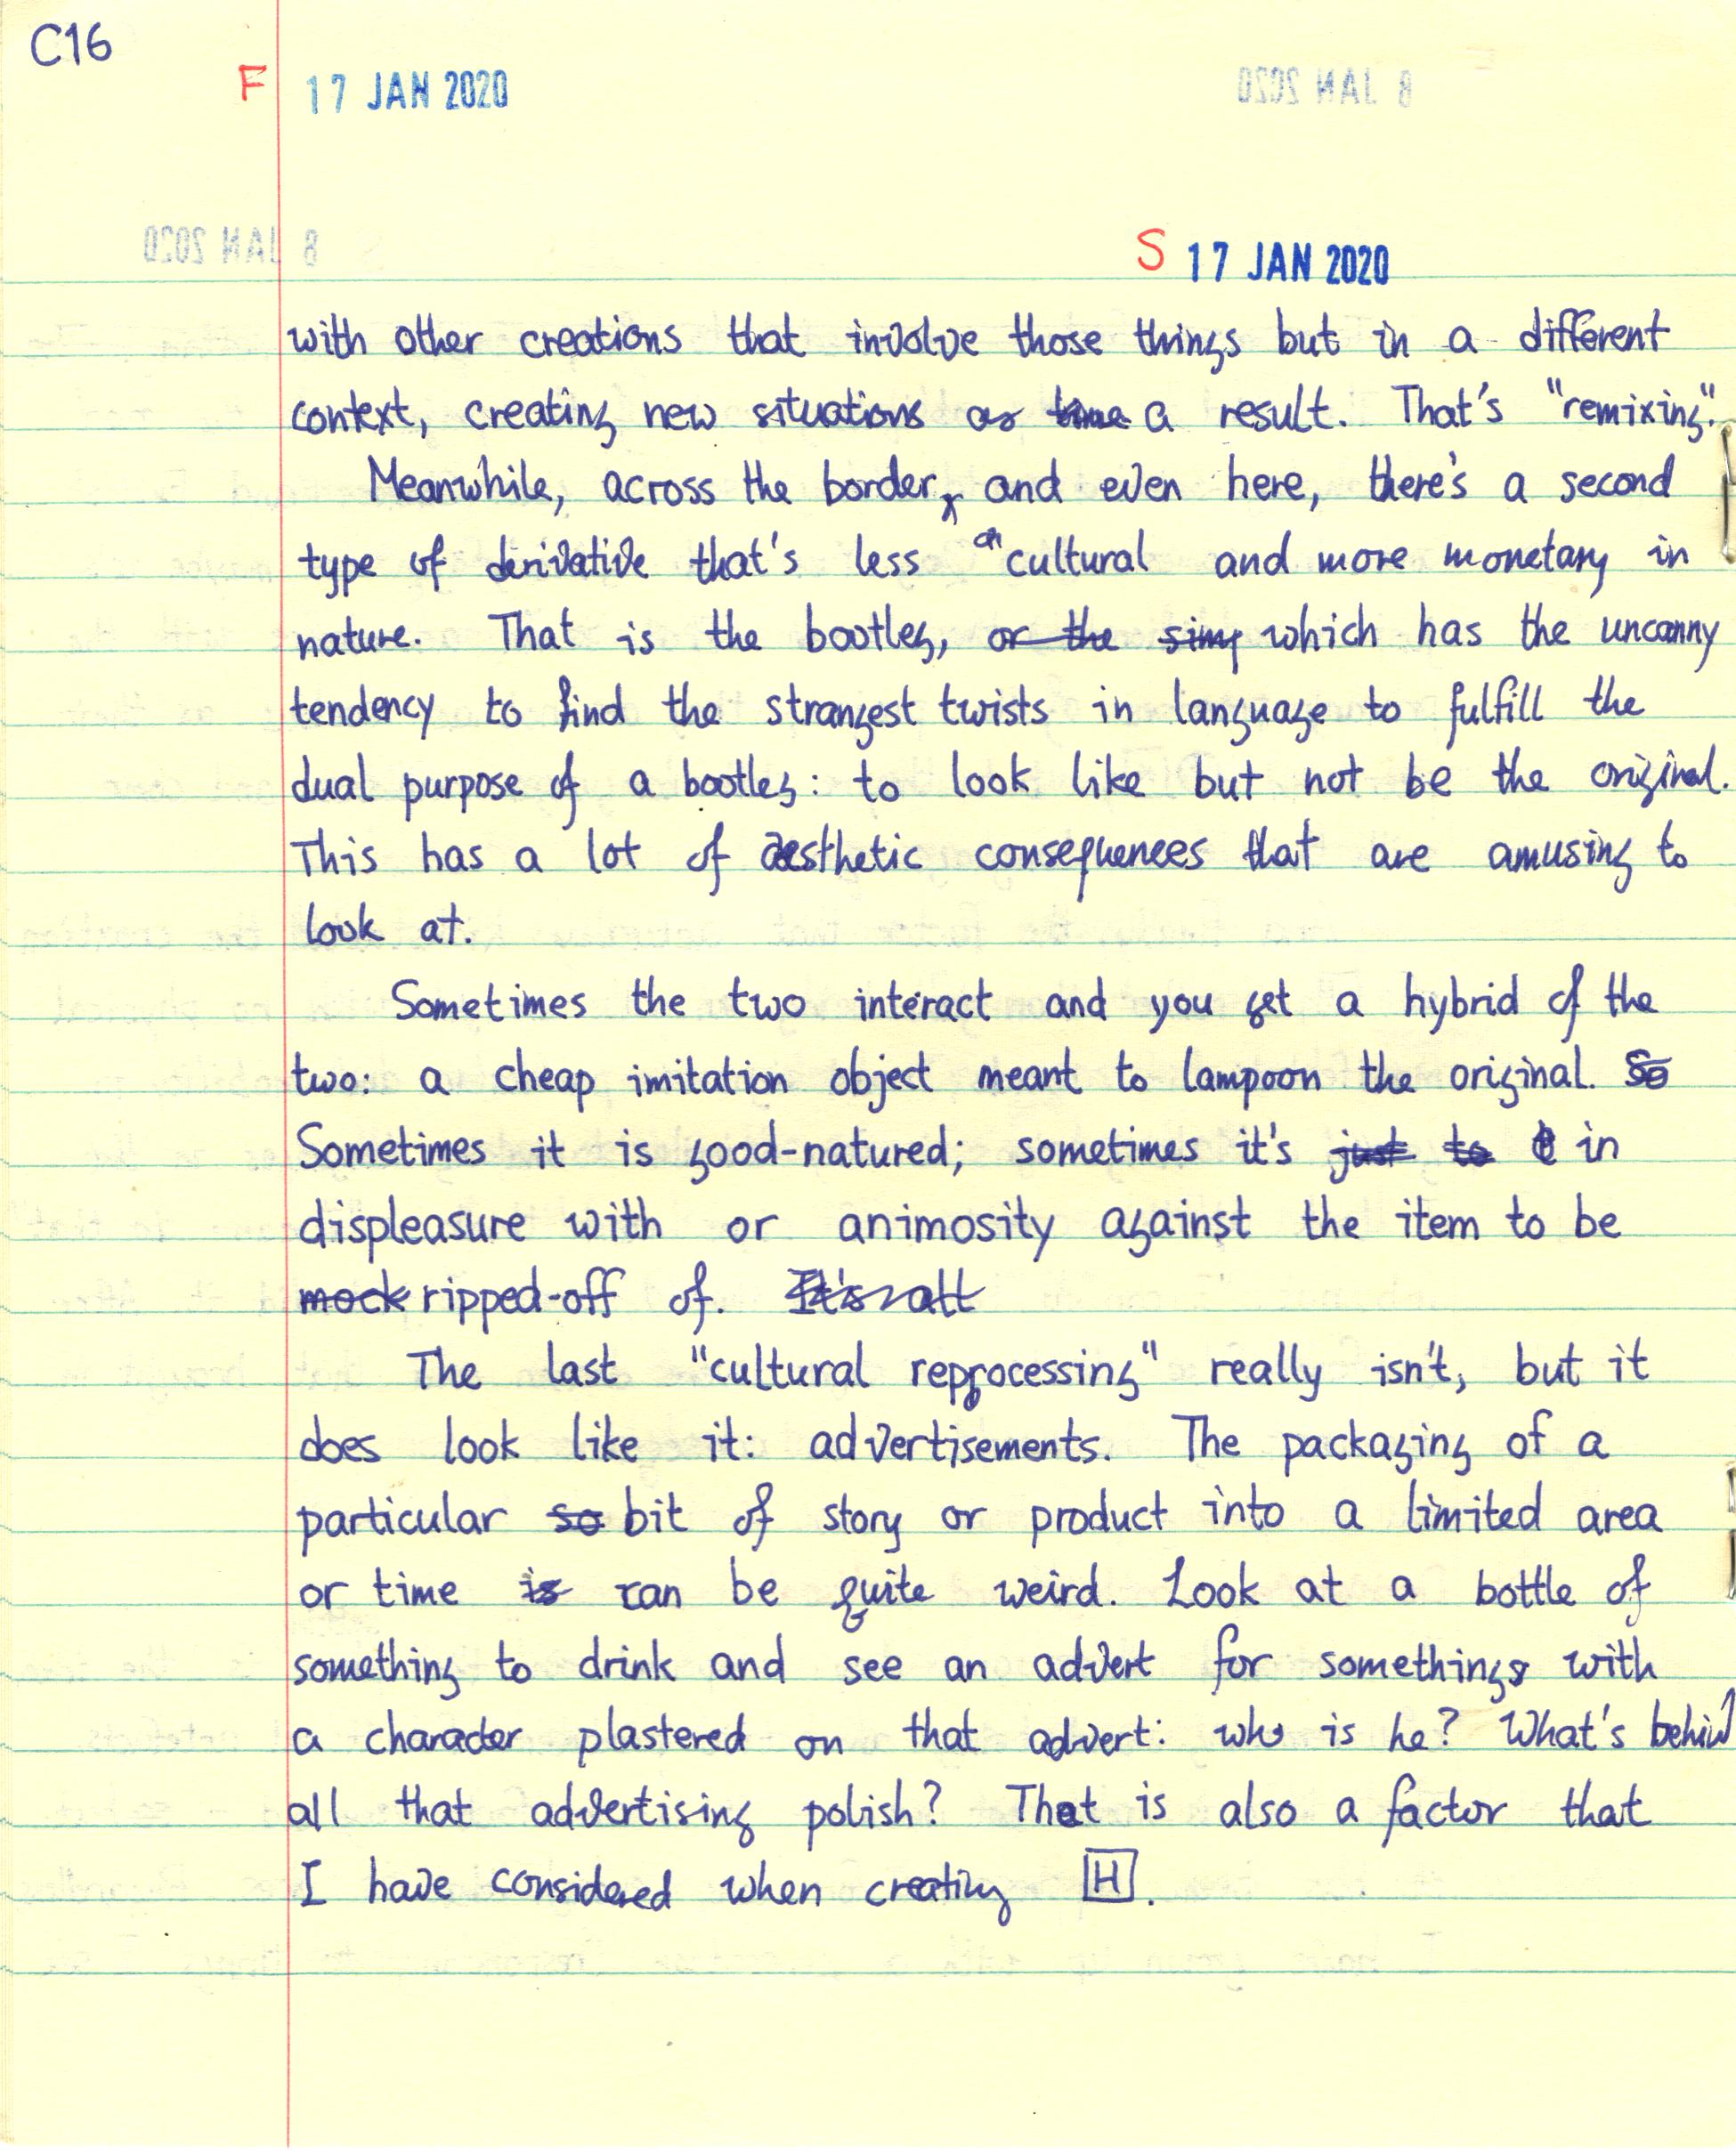 C16
F 17 JAN 2020
S 17 JAN 2020
with other creations that involve those things but in a different
context, creating new situations as ~~time~~ a result. That's "remixing".
Meanwhile, across the border, and even here, there's a second
type of derivative that's less cultural and more monetary in
nature. That is the bootleg, ~~or the simp~~ which has the uncanny
tendency to find the strangest twists in language to fulfill the
dual purpose of a bootleg: to look like but not be the original.
This has a lot of aesthetic consequences that are amusing to
look at.
Sometimes the two interact and you get a hybrid of the
two: a cheap imitation object meant to lampoon the original. ~~So~~
Sometimes it is good-natured; sometimes it's ~~just to t~~ in
displeasure with or animosity against the item to be
~~mock~~ ripped-off of. ~~It's all~~
The last "cultural reprocessing" really isn't, but it
does look like it: advertisements. The packaging of a
particular ~~so~~ bit of story or product into a limited area
or time ~~is~~ can be quite weird. Look at a bottle of
something to drink and see an advert for something with
a character plastered on that advert: who is he? What's behind
all that advertising polish? That is also a factor that
I have considered when creating H.